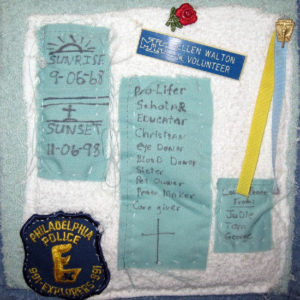 SUNRISE
9-06-68
SUNSET
11-06-98
ELLEN WALTON
VOLUNTEER
Pro-Lifer
Scholar
Educator
Christian
Eye Donor
Blood Donor
Sister
Pet Owner
Peace Maker
Care giver
From:
Julie
Tom
George
PHILADELPHIA
POLICE
E
991-EXPLORERS-991